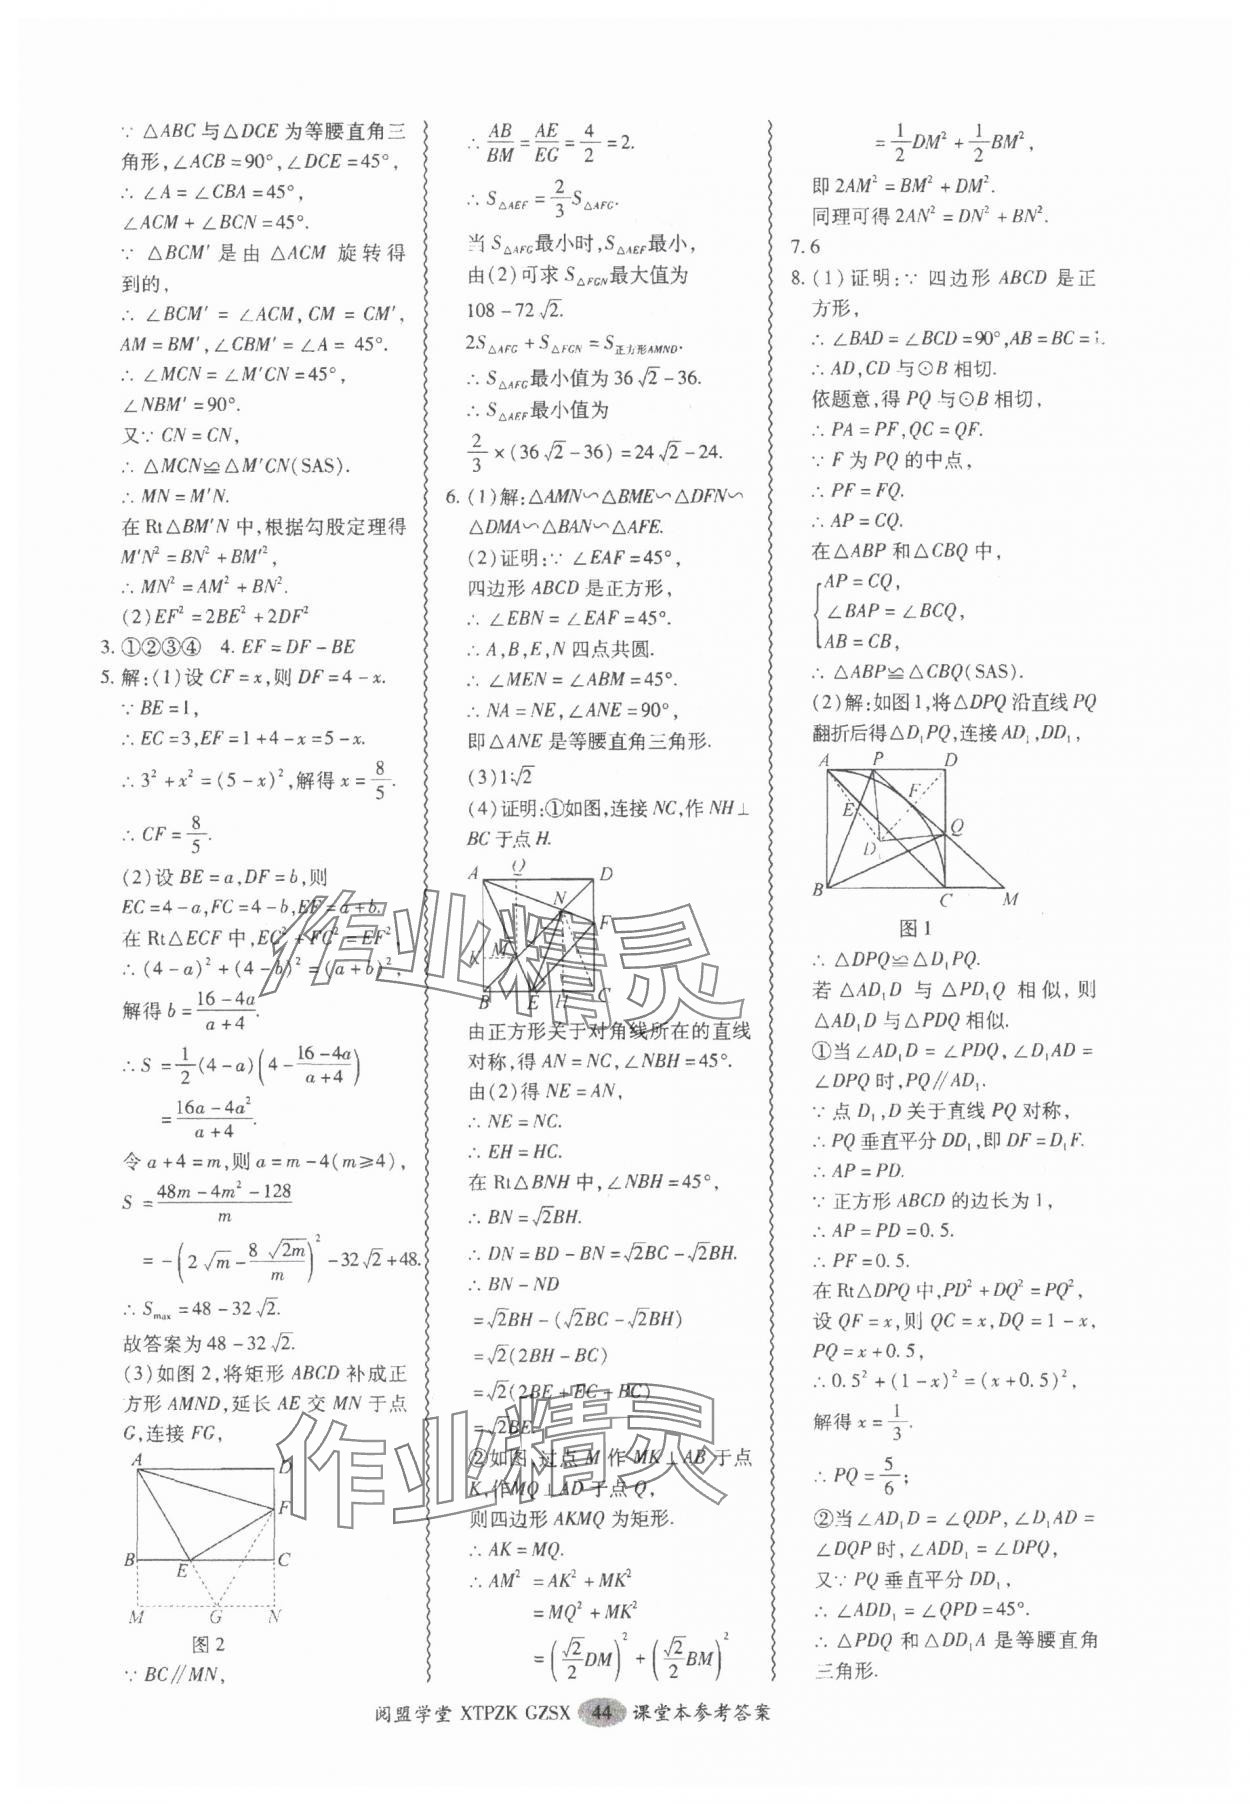 ∵ △ABC与△DCE为等腰直角三
角形,∠ACB=90°,∠DCE=45°,
∴ ∠A=∠CBA=45°,
∠ACM+∠BCN=45°.
∵ △BCM′是由△ACM旋转得
到的,
∴ ∠BCM′=∠ACM,CM=CM′,
AM=BM′,∠CBM′=∠A=45°.
∴ ∠MCN=∠M′CN=45°,
∠NBM′=90°.
又∵ CN=CN,
∴ △MCN≌△M′CN(SAS).
∴ MN=M′N.
在Rt△BM′N中,根据勾股定理得
M′N²=BN²+BM′²,
∴ MN²=AM²+BN².
(2)EF²=2BE²+2DF²
3. ①②③④ 4. EF=DF-BE
5. 解:(1)设CF=x,则DF=4-x.
∵ BE=1,
∴ EC=3,EF=1+4-x=5-x.
∴ 3²+x²=(5-x)²,解得x=8/5.
∴ CF=8/5.
(2)设BE=a,DF=b,则
EC=4-a,FC=4-b,EF=a+b.
在Rt△ECF中,EC²+FC²=EF²,
∴ (4-a)²+(4-b)²=(a+b)²,
解得b=(16-4a)/(a+4).
∴ S=1/2(4-a)(4-(16-4a)/(a+4))
=(16a-4a²)/(a+4).
令a+4=m,则a=m-4(m≥4),
S=(48m-4m²-128)/m
=-(2√m-8√(2m)/m)²-32√2+48.
∴ Smax=48-32√2.
故答案为48-32√2.
(3)如图2,将矩形ABCD补成正
方形AMND,延长AE交MN于点
G,连接FG,
A D
F
B E C
M G N
图2
∵ BC∥MN,
∴ AB/BM=AE/EG=4/2=2.
∴ S△AEF=2/3S△AFG.
当S△AFG最小时,S△AEF最小,
由(2)可求S△FGN最大值为
108-72√2.
2S△AFG+S△FGN=S正方形AMND.
∴ S△AFG最小值为36√2-36.
∴ S△AEF最小值为
2/3×(36√2-36)=24√2-24.
6. (1)解:△AMN∽△BME∽△DFN∽
△DMA∽△BAN∽△AFE.
(2)证明:∵ ∠EAF=45°,
四边形ABCD是正方形,
∴ ∠EBN=∠EAF=45°.
∴ A,B,E,N四点共圆.
∴ ∠MEN=∠ABM=45°.
∴ NA=NE,∠ANE=90°,
即△ANE是等腰直角三角形.
(3)1:√2
(4)证明:①如图,连接NC,作NH⊥
BC于点H.
A Q D
N
F
K M
B E H C
由正方形关于对角线所在的直线
对称,得AN=NC,∠NBH=45°.
由(2)得NE=AN,
∴ NE=NC.
∴ EH=HC.
在Rt△BNH中,∠NBH=45°,
∴ BN=√2BH.
∴ DN=BD-BN=√2BC-√2BH.
∴ BN-ND
=√2BH-(√2BC-√2BH)
=√2(2BH-BC)
=√2(2BE+EC-BC)
=√2BE.
②如图,过点M作MK⊥AB于点
K,作MQ⊥AD于点Q,
则四边形AKMQ为矩形.
∴ AK=MQ.
∴ AM²=AK²+MK²
=MQ²+MK²
=(√2/2DM)²+(√2/2BM)²
=1/2DM²+1/2BM²,
即2AM²=BM²+DM².
同理可得2AN²=DN²+BN².
7. 6
8. (1)证明:∵ 四边形ABCD是正
方形,
∴ ∠BAD=∠BCD=90°,AB=BC=1.
∴ AD,CD与⊙B相切.
依题意,得PQ与⊙B相切,
∴ PA=PF,QC=QF.
∵ F为PQ的中点,
∴ PF=FQ.
∴ AP=CQ.
在△ABP和△CBQ中,
{AP=CQ,
∠BAP=∠BCQ,
AB=CB,
∴ △ABP≌△CBQ(SAS).
(2)解:如图1,将△DPQ沿直线PQ
翻折后得△D₁PQ,连接AD₁,DD₁,
A P D
E F
D₁ Q
B C M
图1
∴ △DPQ≌△D₁PQ.
若△AD₁D与△PD₁Q相似,则
△AD₁D与△PDQ相似.
①当∠AD₁D=∠PDQ,∠D₁AD=
∠DPQ时,PQ∥AD₁.
∵ 点D₁,D关于直线PQ对称,
∴ PQ垂直平分DD₁,即DF=D₁F.
∴ AP=PD.
∵ 正方形ABCD的边长为1,
∴ AP=PD=0.5.
∴ PF=0.5.
在Rt△DPQ中,PD²+DQ²=PQ²,
设QF=x,则QC=x,DQ=1-x,
PQ=x+0.5,
∴ 0.5²+(1-x)²=(x+0.5)²,
解得x=1/3.
∴ PQ=5/6;
②当∠AD₁D=∠QDP,∠D₁AD=
∠DQP时,∠ADD₁=∠DPQ,
又∵ PQ垂直平分DD₁,
∴ ∠ADD₁=∠QPD=45°.
∴ △PDQ和△DD₁A是等腰直角
三角形.
阅盟学堂 XTPZK GZSX 44 课堂本参考答案
作业精灵
作业精灵